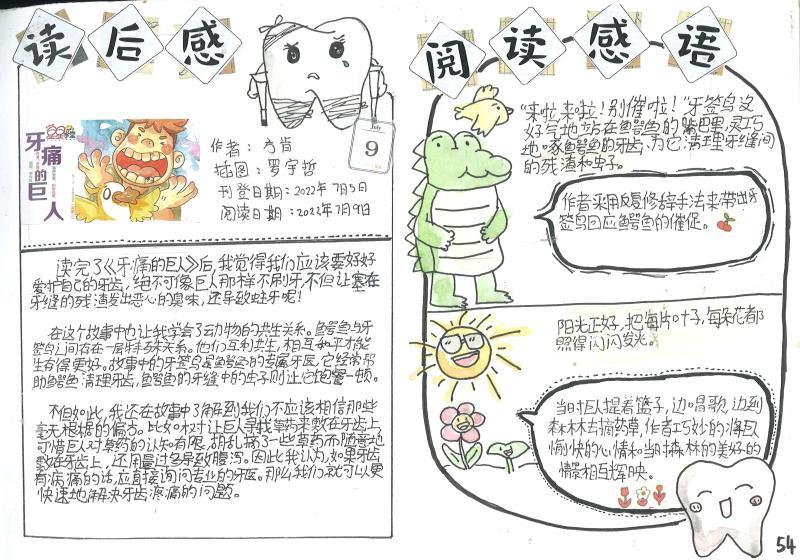 读后感
July
9
牙痛的巨人
作者：方肯
插图：罗宇哲
刊登日期：2022年7月5日
阅读日期：2022年7月9日
读完了《牙痛的巨人》后，我觉得我们应该要好好
爱护自己的牙齿，绝不可像巨人那样不刷牙，不但让塞在
牙缝的残渣发出恶心的臭味，还导致蛀牙呢！
在这个故事中也让我学会了动物的共生关系。鳄鱼与牙
签鸟之间存在一层特殊关系。他们互利共生，相互和平才能
生存得更好。故事中的牙签鸟是鳄鱼的专属牙医，它经常帮
助鳄鱼清理牙齿，鳄鱼的牙缝中的虫子则让它饱餐一顿。
不但如此，我还在故事中了解到我们不应该相信那些
毫无根据的偏方。比如树让巨人寻找草药来敷在牙齿上，
可惜巨人对草药的认知有限，胡乱摘了一些草药而随意地
敷在牙齿上，还用量过多导致腹泻。因此我认为，如果牙齿
有病痛的话，应直接询问专业的牙医。那么我们就可以更
快速地解决牙齿疼痛的问题。
阅读感语
“来啦，来啦！别催啦！”牙签鸟没
好气地站在鳄鱼的嘴巴里，灵巧
地啄鳄鱼的牙齿，为它清理牙缝间
的残渣和虫子。
作者采用反复修辞手法来带出牙
签鸟回应鳄鱼的催促。
阳光正好，把每片叶子，每朵花都
照得闪闪发光。
当时巨人提着篮子，边唱歌，边到
森林去摘药草，作者巧妙的将巨人
愉快的心情和当时森林的美好的
情景相互辉映。
54